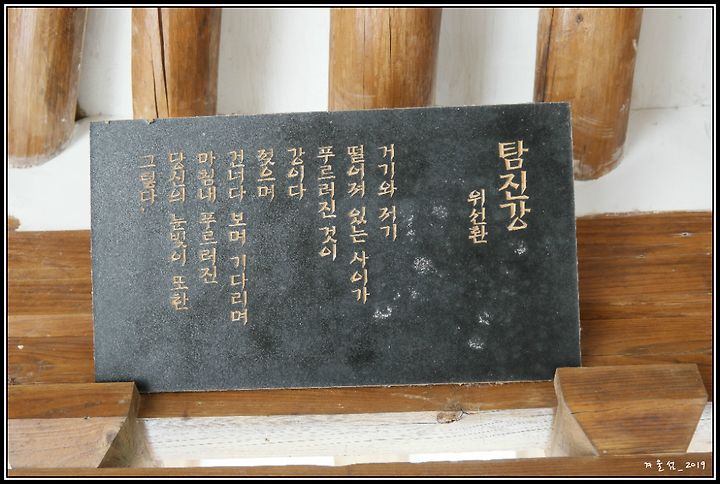 탐진강
위선환
거기와 저기
떨어져 있는 사이가
푸르러진 것이
강이다
젖으며
건너다 보며 기다리며
마침내 푸르러진
당신의 눈빛이 또한
그렇다.
겨울섬_2019